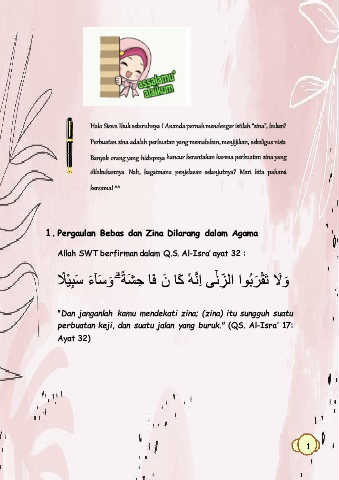 assalamu'
alaikum
Halo Siswa Ibuk seluruhnya ! Ananda pernah mendengar istilah "zina", bukan?
Perbuatan zina adalah perbuatan yang memalukan, menjijikan, sekaligus nista
Banyak orang yang hidupnya hancur berantakan karena perbuatan zina yang
dilakukannya Nah, bagaimana penjelasan selanjutnya? Mari kita pahami
bersama! ^^
1. Pergaulan Bebas dan Zina Dilarang dalam Agama
Allah SWT berfirman dalam Q.S. Al-Isra' ayat 32 :
وَلَا تَقْرَبُوا الزِّنٰٓى اِنَّهٗ كَا نَ فَا حِشَةًۗ وَسَآءَ سَبِيْلًا
"Dan janganlah kamu mendekati zina; (zina) itu sungguh suatu
perbuatan keji, dan suatu jalan yang buruk." (QS. Al-Isra' 17:
Ayat 32)
1